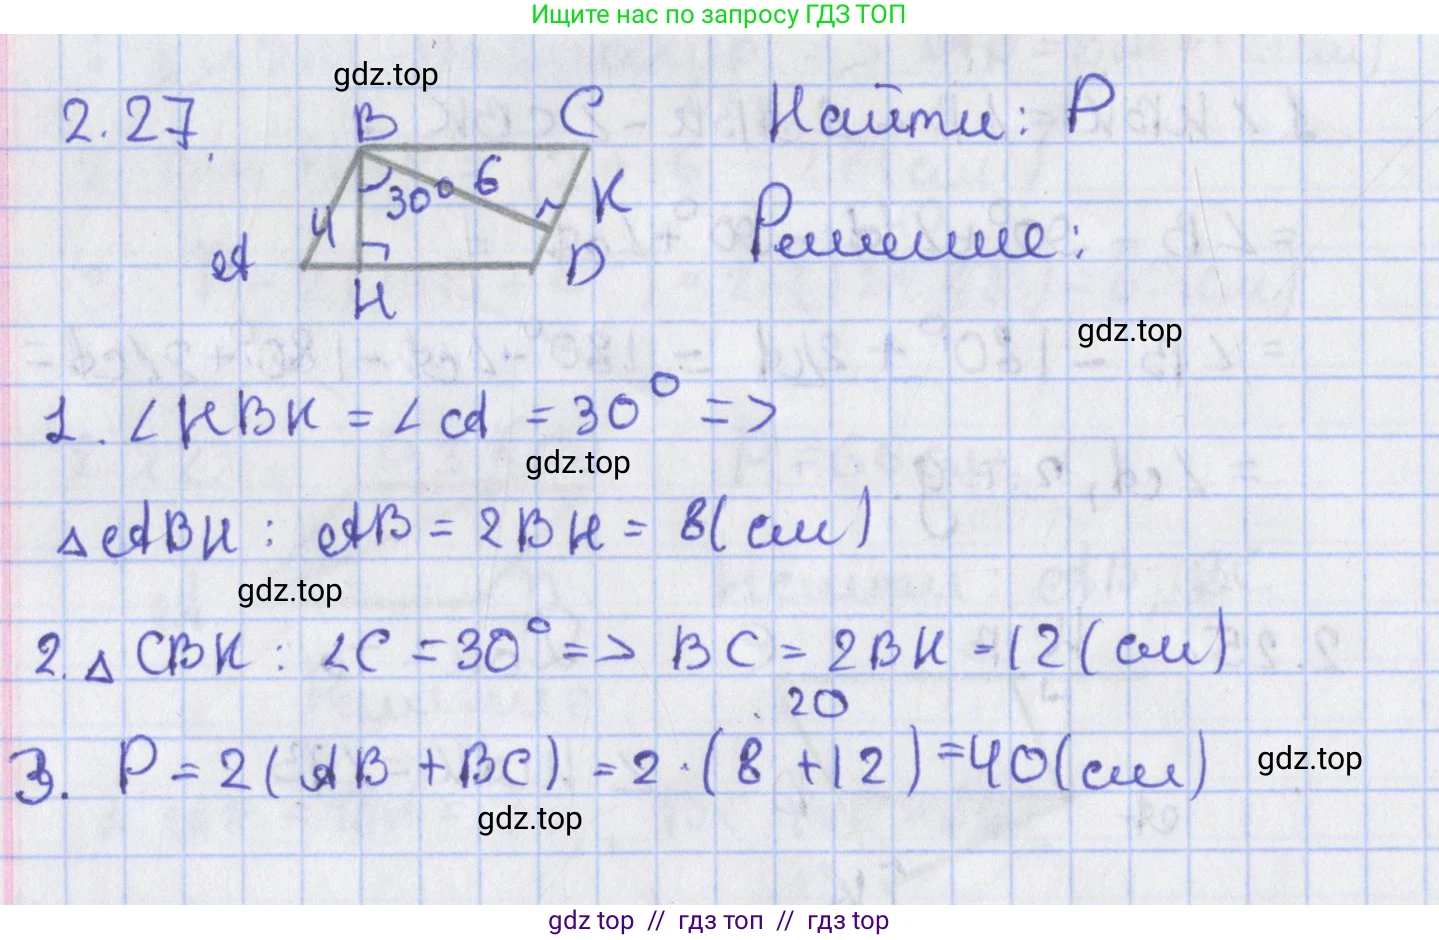 Ищите нас по запросу ГДЗ ТОП
gdz.top
2.27.
B C
Найти: P
4 30° 6 K
A H D
Решение:
gdz.top
1. ∠HBK = ∠A = 30° =>
gdz.top
△ABH : AB = 2BH = 8(см)
gdz.top
2. △CBK : ∠C = 30° => BC = 2BK = 12(см)
20
3. P = 2(AB + BC) = 2 · (8 + 12) = 40(см)
gdz.top
gdz.top
gdz top // гдз топ // гдз top